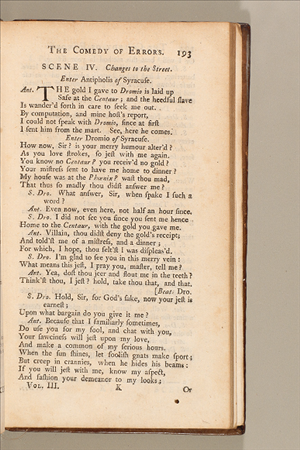 THE COMEDY OF ERRORS. 193
SCENE IV. Changes to the Street.
Enter Antipholis of Syracuse.
Ant. THE gold I gave to Dromio is laid up
Safe at the Centaur; and the heedful slave
Is wander'd forth in care to seek me out.
By computation, and mine host's report,
I could not speak with Dromio, since at first
I sent him from the mart. See, here he comes.
Enter Dromio of Syracuse.
How now, Sir? is your merry humour alter'd?
As you love strokes, so jest with me again.
You know no Centaur? you receiv'd no gold?
Your mistress sent to have me home to dinner?
My house was at the Phœnix? wast thou mad,
That thus so madly thou didst answer me?
S. Dro. What answer, Sir, when spake I such a
word?
Ant. Even now, even here, not half an hour since.
S. Dro. I did not see you since you sent me hence
Home to the Centaur, with the gold you gave me.
Ant. Villain, thou didst deny the gold's receipt;
And told'st me of a mistress, and a dinner;
For which, I hope, thou felt'st I was displeas'd.
S. Dro. I'm glad to see you in this merry vein:
What means this jest, I pray you, master, tell me?
Ant. Yea, dost thou jeer and flout me in the teeth?
Think'st thou, I jest? hold, take thou that, and that.
[Beats Dro.
S. Dro. Hold, Sir, for God's sake, now your jest is
earnest;
Upon what bargain do you give it me?
Ant. Because that I familiarly sometimes,
Do use you for my fool, and chat with you,
Your sawciness will jest upon my love,
And make a common of my serious hours.
When the sun shines, let foolish gnats make sport;
But creep in crannies, when he hides his beams:
If you will jest with me, know my aspect,
And fashion your demeanor to my looks;
VOL. III. K Or